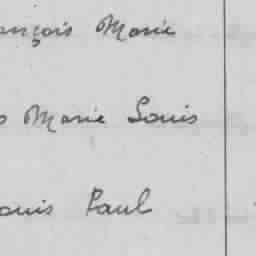 ançois Marie
s Marie Louis
ouis Paul